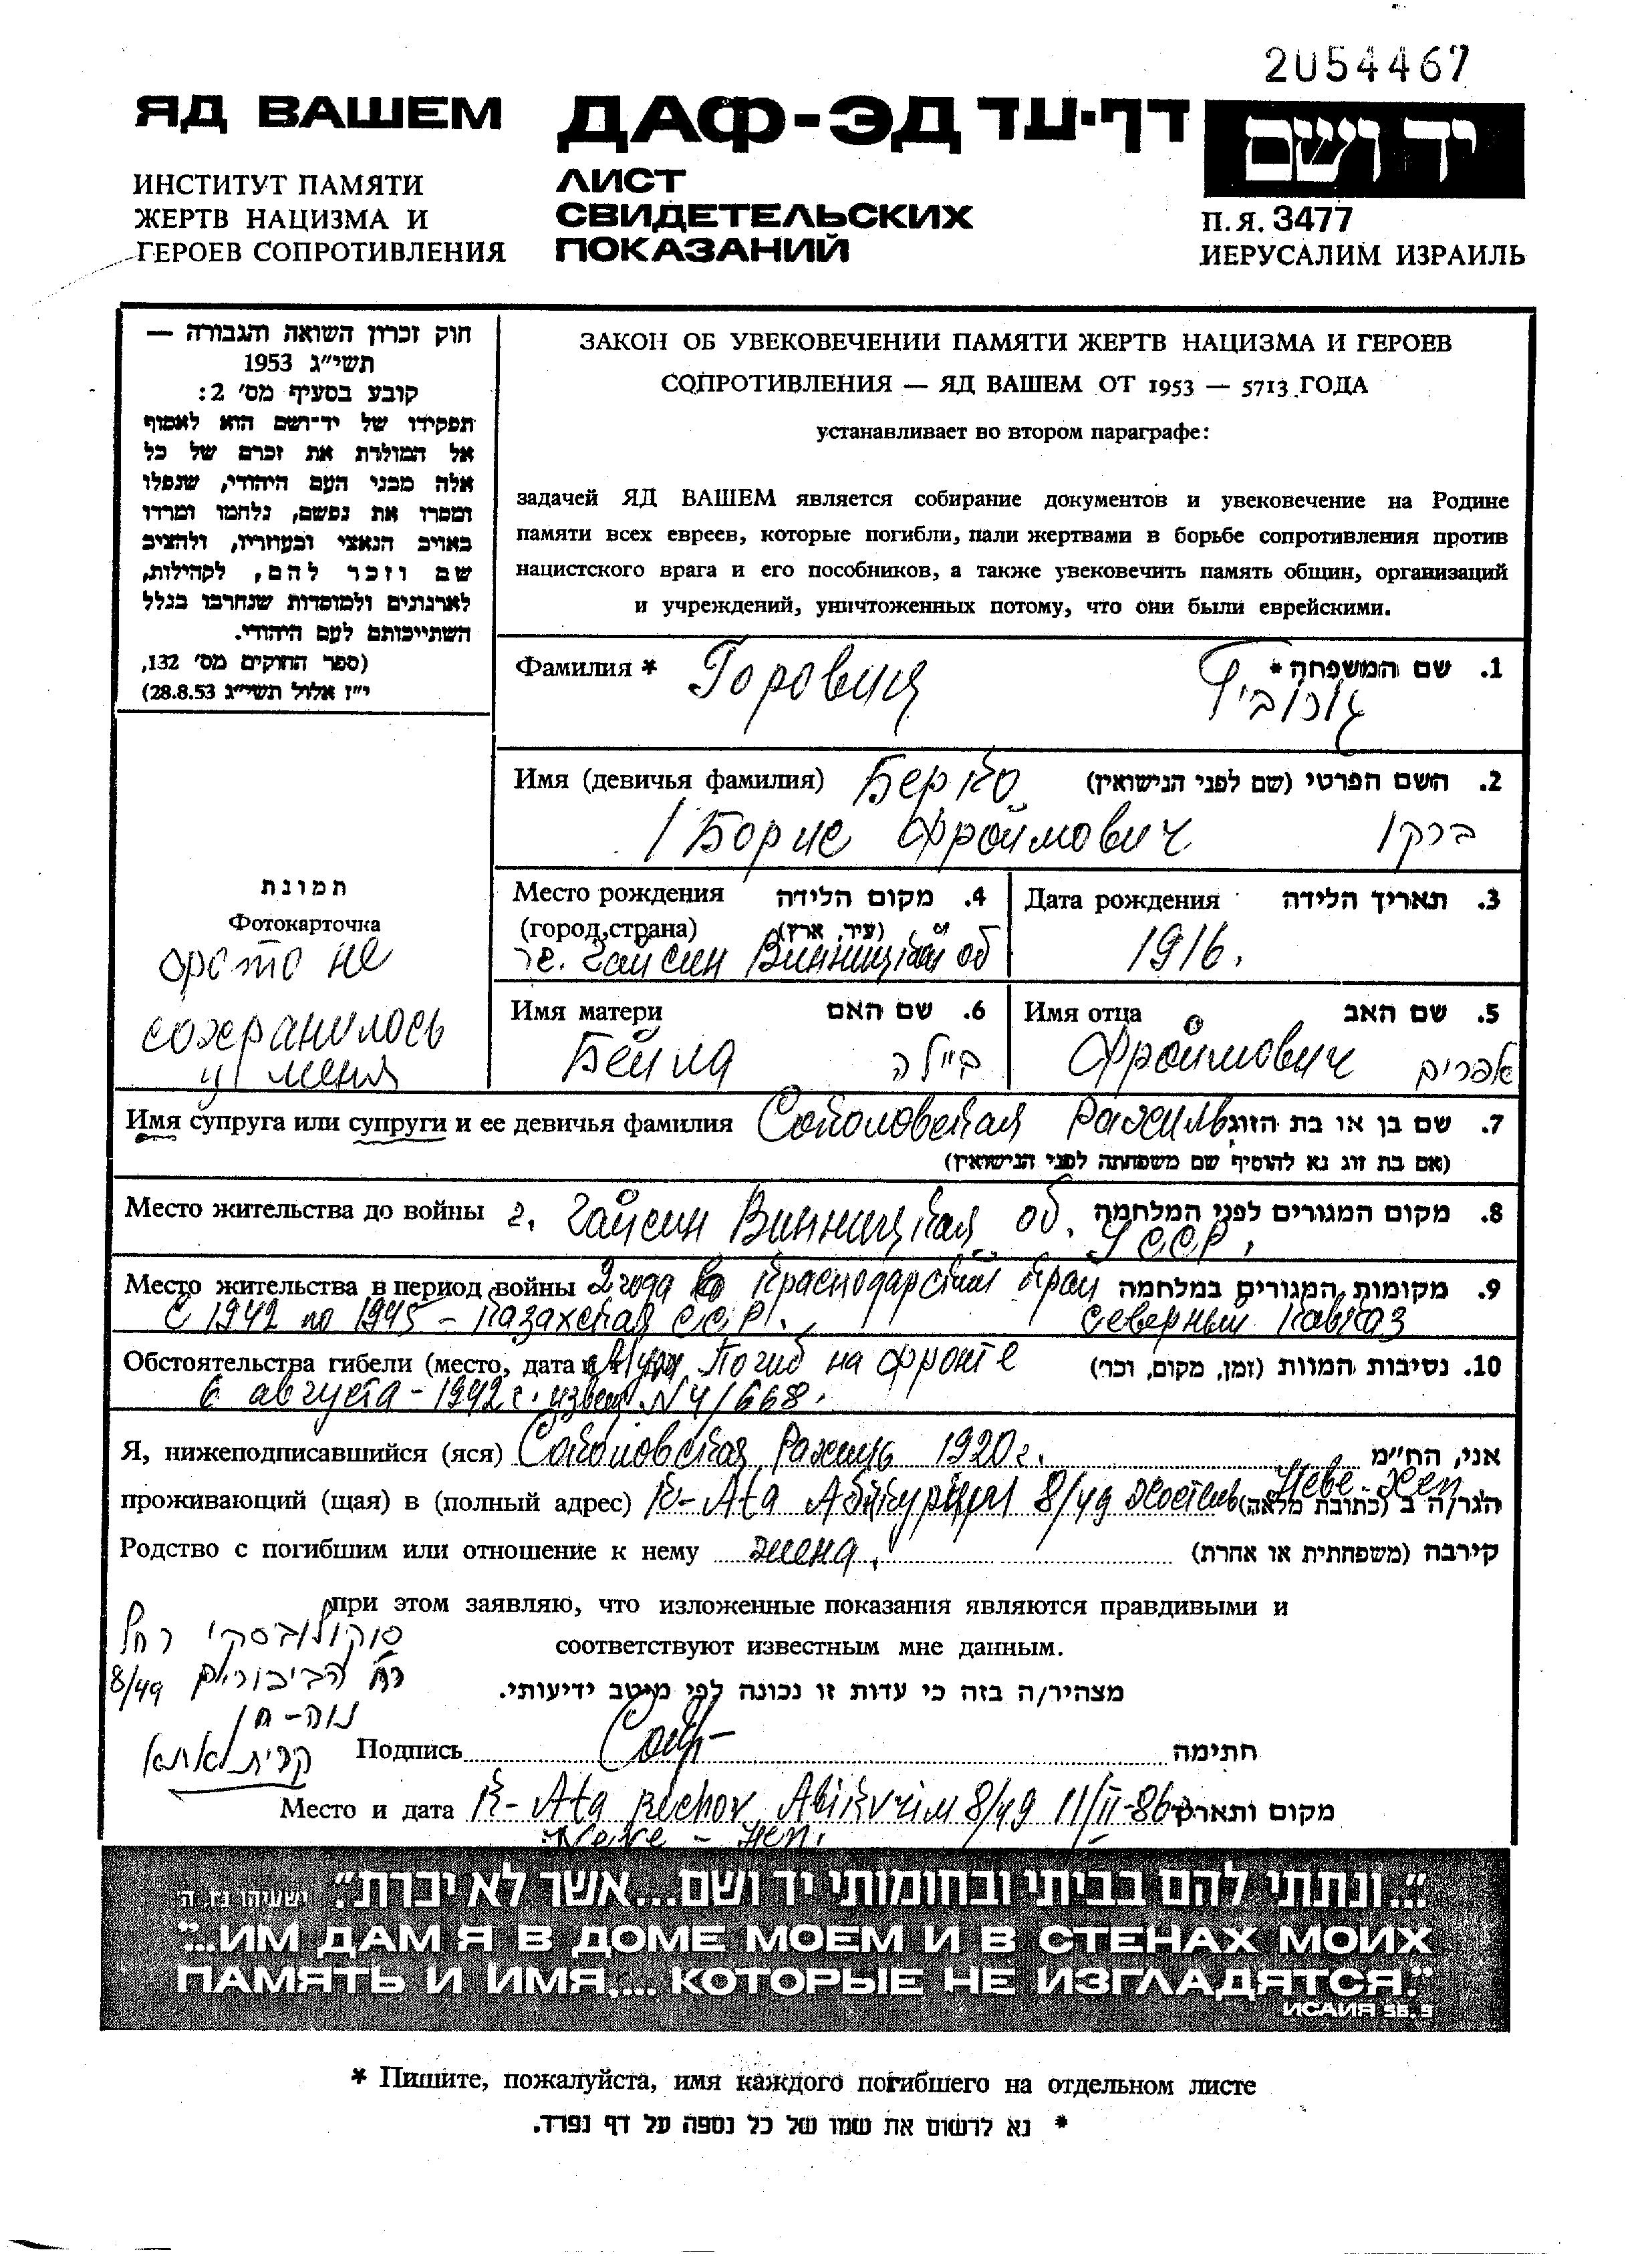 2054467
ЯД ВАШЕМ
ДАФ-ЭД דף-עד
יד ושם
ИНСТИТУТ ПАМЯТИ
ЖЕРТВ НАЦИЗМА И
ГЕРОЕВ СОПРОТИВЛЕНИЯ
ЛИСТ
СВИДЕТЕЛЬСКИХ
ПОКАЗАНИЙ
П.Я. 3477
ИЕРУСАЛИМ ИЗРАИЛЬ
חוק זכרון השואה והגבורה —
תשי״ג 1953
קובע בסעיף מס׳ 2:
תפקידו של יד־ושם הוא לאסוף
אל המולדת את זכרם של כל
אלה מבני העם היהודי, שנפלו
ומסרו את נפשם, נלחמו ומרדו
באויב הנאצי ובעוזריו, ולהציב
שם וזכר להם, לקהילות,
לארגונים ולמוסדות שנחרבו בגלל
השתייכותם לעם היהודי.
(ספר החוקים מס׳ 132,
י״ז אלול תשי״ג 28.8.53)
ЗАКОН ОБ УВЕКОВЕЧЕНИИ ПАМЯТИ ЖЕРТВ НАЦИЗМА И ГЕРОЕВ
СОПРОТИВЛЕНИЯ — ЯД ВАШЕМ ОТ 1953 — 5713 ГОДА
устанавливает во втором параграфе:
задачей ЯД ВАШЕМ является собирание документов и увековечение на Родине
памяти всех евреев, которые погибли, пали жертвами в борьбе сопротивления против
нацистского врага и его пособников, а также увековечить память общин, организаций
и учреждений, уничтоженных потому, что они были еврейскими.
Фамилия * Горовиц 1. שם המשפחה *
גורוביץ
Имя (девичья фамилия) Берко 2. השם הפרטי (שם לפני הנישואין)
/ Борис Фроймович ברקו
Место рождения 4. מקום הלידה
(город,страна) (עיר, ארץ)
г. Гайсин Винницкой об
Дата рождения 3. תאריך הלידה
1916.
תמונת
Фотокарточка
фото не
сохранилось
у меня
Имя матери 6. שם האם
Бейла ביילה
Имя отца 5. שם האב
Фроймович אפרים
Имя супруга или супруги и ее девичья фамилия Соколовская Рахиль 7. שם בן או בת הזוג
(אם בת זוג נא להוסיף שם משפחתה לפני הנישואין)
Место жительства до войны г. Гайсин Винницкая об. 8. מקום המגורים לפני המלחמה
УССР.
Место жительства в период войны 2 года Краснодарский край 9. מקומות המגורים במלחמה
С 1942 по 1945 – Казахская ССР. Северный Кавказ
Обстоятельства гибели (место, дата и Погиб на фронте 10. נסיבות המוות (זמן, מקום, וכד׳)
6 августа – 1942 г. извещ N 4/668.
Я, нижеподписавшийся (яся) Соколовская Рахиль 1920 г. אני, הח״מ
Неве-Хен
проживающий (щая) в (полный адрес) К-Ata Абикурим 8/49 הגר/ה ב (כתובת מלאה)
Родство с погибшим или отношение к нему жена. קירבה (משפחתית או אחרת)
при этом заявляю, что изложенные показания являются правдивыми и
соответствуют известным мне данным.
סוקולובסקי רחל
רח הביכורים 8/49
נווה-חן
קרית אתא
מצהיר/ה בזה כי עדות זו נכונה לפי מיטב ידיעותי.
Подпись חתימה
Место и дата К-Ata Rechov Abikurim 8/49 11/II-86 מקום ותאריך
Neve - Hen.
"...ונתתי להם בביתי ובחומותי יד ושם...אשר לא יכרת." ישעיהו נו, ה׳
"...ИМ ДАМ Я В ДОМЕ МОЕМ И В СТЕНАХ МОИХ
ПАМЯТЬ И ИМЯ,... КОТОРЫЕ НЕ ИЗГЛАДЯТСЯ."
ИСАИЯ 56.5
* Пишите, пожалуйста, имя каждого погибшего на отдельном листе
* נא לרשום את שמו של כל נספה על דף נפרד.